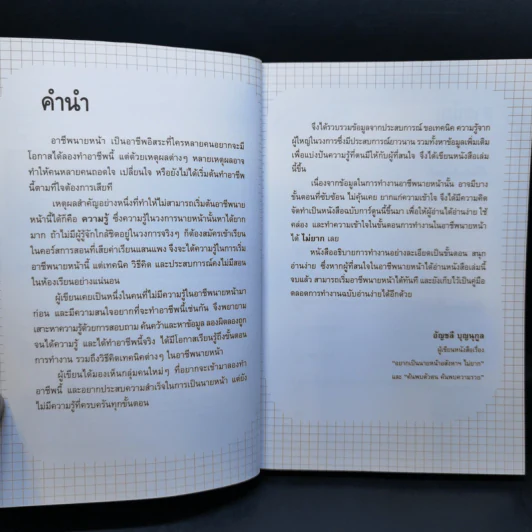 คำนำ
อาชีพนายหน้า เป็นอาชีพอิสระที่ใครหลายคนอยากจะมี
โอกาสได้ลองทำอาชีพนี้ แต่ด้วยเหตุผลต่างๆ หลายเหตุผลอาจ
ทำให้คนหลายคนถอดใจ เปลี่ยนใจ หรือยังไม่ได้เริ่มต้นทำอาชีพ
นี้ตามที่ใจต้องการเสียที
เหตุผลสำคัญอย่างหนึ่งที่ทำให้ไม่สามารถเริ่มต้นอาชีพนาย
หน้านี้ได้ก็คือ ความรู้ ซึ่งความรู้ในวงการนายหน้านั้นหาได้ยาก
มาก ถ้าไม่มีผู้รู้จักใกล้ชิดอยู่ในวงการจริงๆ ก็ต้องสมัครเข้าเรียน
ในคอร์สการสอนที่เสียค่าเรียนแสนแพง จึงจะได้ความรู้ในการเริ่ม
อาชีพนายหน้านี้ แต่เทคนิค วิธีคิด และประสบการณ์คงไม่มีสอน
ในห้องเรียนอย่างแน่นอน
ผู้เขียนเคยเป็นหนึ่งในคนที่ไม่มีความรู้ในอาชีพนายหน้ามา
ก่อน และมีความสนใจอยากที่จะทำอาชีพนี้เช่นกัน จึงพยายาม
เสาะหาความรู้ด้วยการสอบถาม ค้นคว้าและหาข้อมูล ลองผิดลองถูก
จนได้ความรู้ และได้ทำอาชีพนี้จริง ได้มีโอกาสเรียนรู้ถึงขั้นตอน
การทำงาน รวมถึงวิธีคิดเทคนิคต่างๆ ในอาชีพนายหน้า
ผู้เขียนได้มองเห็นกลุ่มคนใหม่ๆ ที่อยากจะเข้ามาลองทำ
อาชีพนี้ และอยากประสบความสำเร็จในการเป็นนายหน้า แต่ยัง
ไม่มีความรู้ที่ครบครันทุกขั้นตอน
จึงได้รวบรวมข้อมูลจากประสบการณ์ ขอเทคนิค ความรู้จาก
ผู้ใหญ่ในวงการซึ่งมีประสบการณ์ยาวนาน รวมทั้งหาข้อมูลเพิ่มเติม
เพื่อแบ่งปันความรู้ที่ตนมีให้กับผู้ที่สนใจ จึงได้เขียนหนังสือเล่ม
นี้ขึ้น
เนื่องจากข้อมูลในการทำงานอาชีพนายหน้านั้น อาจมีบาง
ขั้นตอนที่ซับซ้อน ไม่คุ้นเคย ยากแก่ความเข้าใจ จึงได้มีความคิด
จัดทำเป็นหนังสือฉบับการ์ตูนนี้ขึ้นมา เพื่อให้ผู้อ่านได้อ่านง่าย ใช้
คล่อง และทำความเข้าใจในขั้นตอนการทำงานในอาชีพนายหน้า
ได้ ไม่ยาก เลย
หนังสืออธิบายการทำงานอย่างละเอียดเป็นขั้นตอน สนุก
อ่านง่าย ซึ่งหากผู้ที่สนใจในอาชีพนายหน้าได้อ่านหนังสือเล่มนี้
จบแล้ว สามารถเริ่มทำอาชีพนายหน้าได้ทันที และยังเก็บไว้เป็นคู่มือ
ตลอดการทำงานฉบับอ่านง่ายได้อีกด้วย
อัญชลี บุญนุกูล
ผู้เขียนหนังสือเรื่อง
"อยากเป็นนายหน้าอสังหาฯ ไม่ยาก"
และ "ค้นพบตัวตน ค้นพบความรวย"